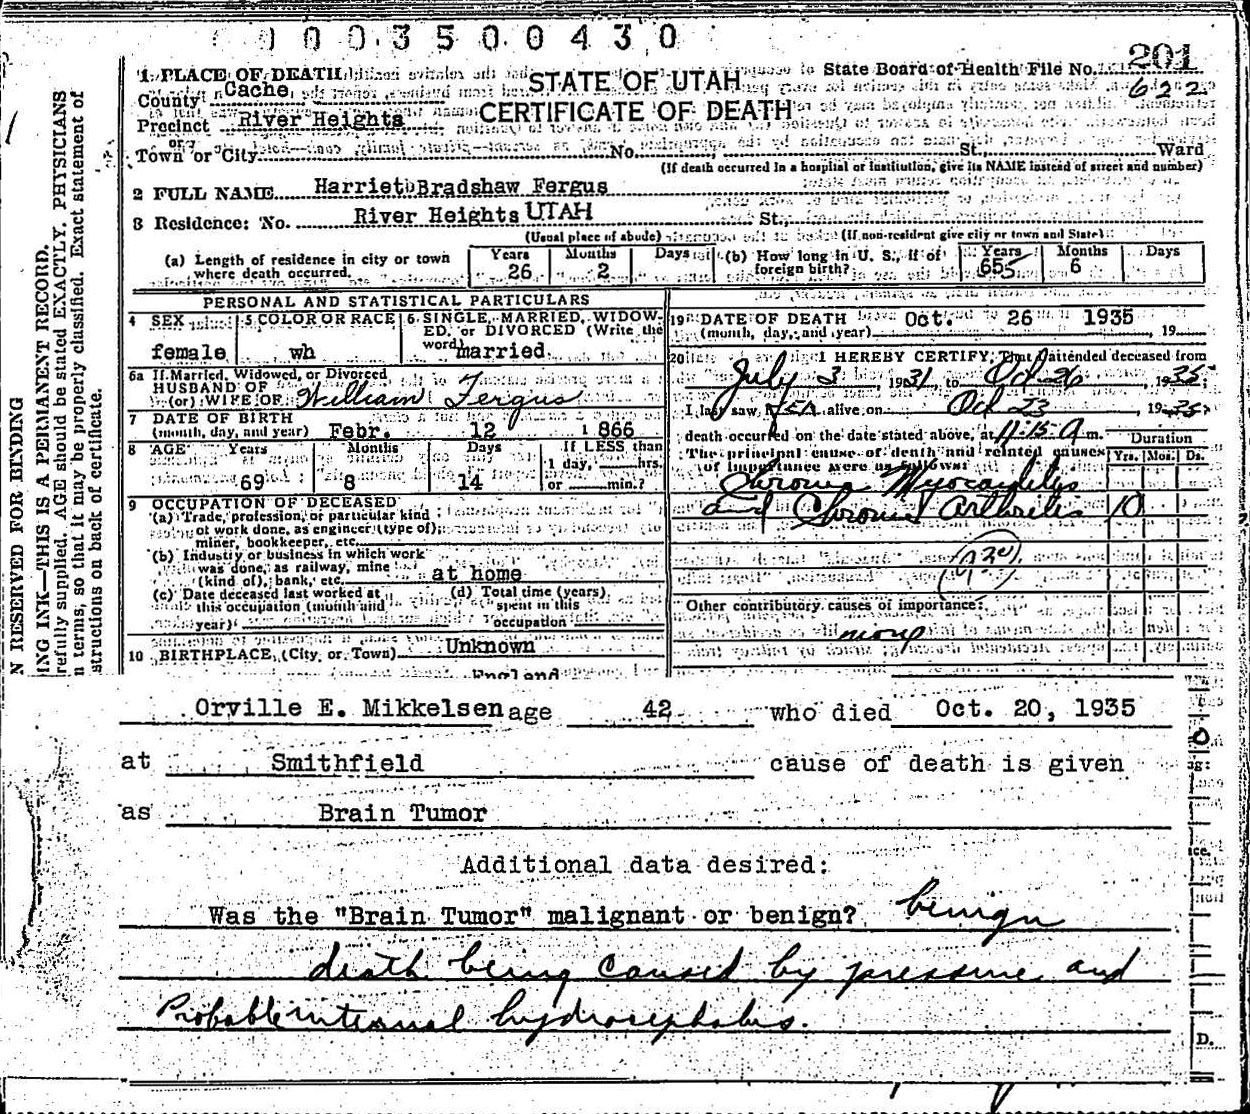 0 0 0 3 5 0 0 4 3 0
201
622
1 PLACE OF DEATH
STATE OF UTAH
State Board of Health File No.
County Cache
CERTIFICATE OF DEATH
Precinct River Heights
or
Town or City No. St. Ward
(If death occurred in a hospital or institution, give its NAME instead of street and number)
2 FULL NAME Harriet Bradshaw Fergus
3 Residence: No. River Heights UTAH St.
(Usual place of abode) (If non-resident give city or town and State)
(a) Length of residence in city or town where death occurred. Years 26 Months 2 Days
(b) How long in U. S., if of foreign birth? Years 65 Months 6 Days
PERSONAL AND STATISTICAL PARTICULARS
4 SEX female
5 COLOR OR RACE wh
6 SINGLE, MARRIED, WIDOWED, or DIVORCED (Write the word) married
6a If Married, Widowed, or Divorced
HUSBAND OF
(or) WIFE OF William Fergus
7 DATE OF BIRTH
(month, day, and year) Febr. 12 1866
8 AGE Years 69 Months 8 Days 14
If LESS than
1 day, hrs.
or min.?
9 OCCUPATION OF DECEASED
(a) Trade, profession, or particular kind
of work done, as engineer (type of)
miner, bookkeeper, etc.
(b) Industry or business in which work
was done, as railway, mine
(kind of), bank, etc. at home
(c) Date deceased last worked at
this occupation (month and
year)
(d) Total time (years)
spent in this
occupation
10 BIRTHPLACE, (City or Town) Unknown
England
19 DATE OF DEATH Oct. 26 1935
(month, day, and year) , 19
20 I HEREBY CERTIFY, That I attended deceased from
July 3, 1931, to Oct 26, 1935;
I last saw her alive on Oct 23, 1935;
death occurred on the date stated above, at 11:15 A m.
The principal cause of death and related causes
of importance were as follows:
Duration
Yrs. Mos. Ds.
Chronic Myocarditis
and Chronic Arthritis 10
Other contributory causes of importance:
N RESERVED FOR BINDING
ING INK—THIS IS A PERMANENT RECORD.
refully supplied. AGE should be stated EXACTLY. PHYSICIANS
n terms, so that it may be properly classified. Exact statement of
structions on back of certificate.
Orville E. Mikkelsen age 42 who died Oct. 20, 1935
at Smithfield cause of death is given
as Brain Tumor
Additional data desired:
Was the "Brain Tumor" malignant or benign? benign
death being caused by pressure and
Probable internal hydrocephalus.
ice.
D.